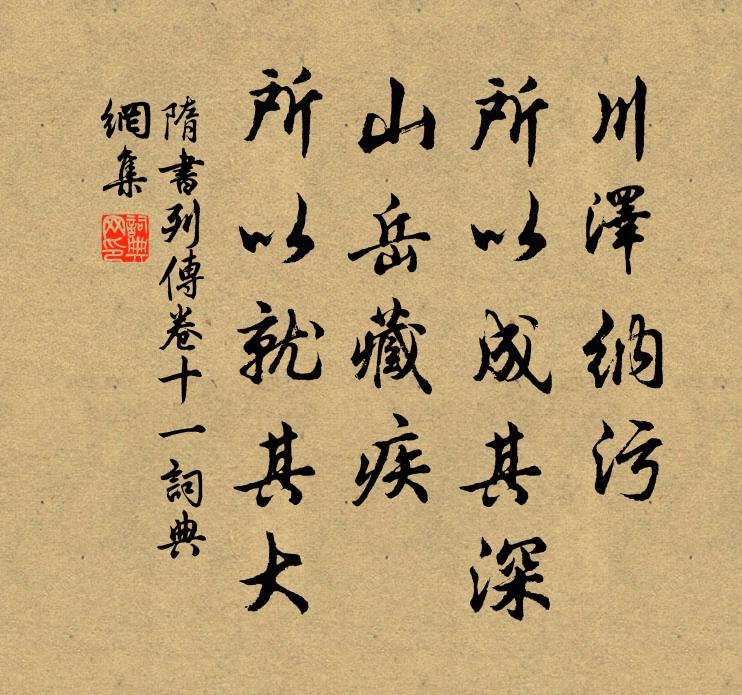 川澤納污
所以成其深
山岳藏疾
所以就其大
隋書列傳卷十一詞典
網集
詞典
网印